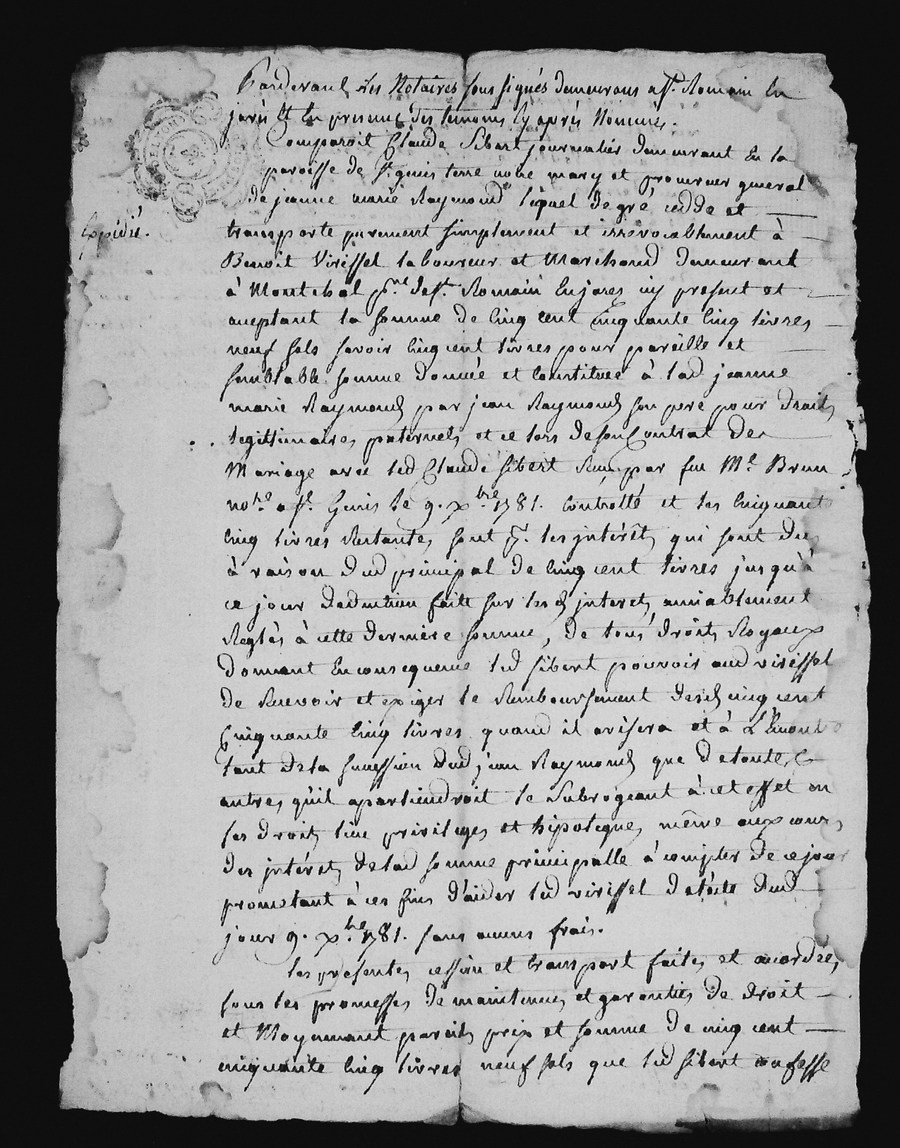 Pardevant Les Notaires soussignés demeurans a St. Romain En
jarès Et En presence des temoins Cy après Nommés.
Comparoit Claude Sibert journalier demeurant En la
paroisse de St. genis terre noire mary et procureur general
de jeanne marie Raymond lequel de gré cedde et
Expédié.
transporte purement simplement et irrévocablement à
Benoit Viressel laboureur et Marchand demeurant
à Montchal psse. de St. Romain En jares icy present et
aceptant la somme de Cinq cent Cinquante Cinq livres
neuf sols savoir Cinq cent livres pour pareille et
semblable somme donnée et Constituée à lad jeanne
marie Raymond par jean Raymond son pere pour droits
legitimaires paternels et ce lors de son Contrat de
Mariage avec led Claude Sibert Reçu par feu Me. Brun
nore. a St. Genis le 9. xbre 1781. Controllé et les Cinquante
Cinq livres Restantes sont pr. les intérêts qui sont dus
à raison dud principal de Cinq cent livres jusqu'à
ce jour deduction faite sur lesd interets amiablement
Reglés à cette dernière somme, de tous droits Royaux
donnant En consequence led Sibert pouvoir aud viressel
de Recevoir et exiger le Remboursement desd cinq cent
Cinquante Cinq livres quand il avisera et à L'Encontre
tant de la succession dud jean Raymond que de toutes
autres qu'il apartiendroit le Subrogeant à cet effet en
ses droits lieu privileges et hipoteques même aux cours
des intérêts de lad somme principalle à compter de ce jour
promettant à ces fins d'aider led viressel de acte dud
jour 9. xbre 1781. sans aucuns frais.
Les presentes cession et transport faites et acordées
sous les promesses de maintenues et garanties de droit
et Moyennant pareils prix et somme de cinq cent
cinquante Cinq livres neuf sols que led Sibert confesse